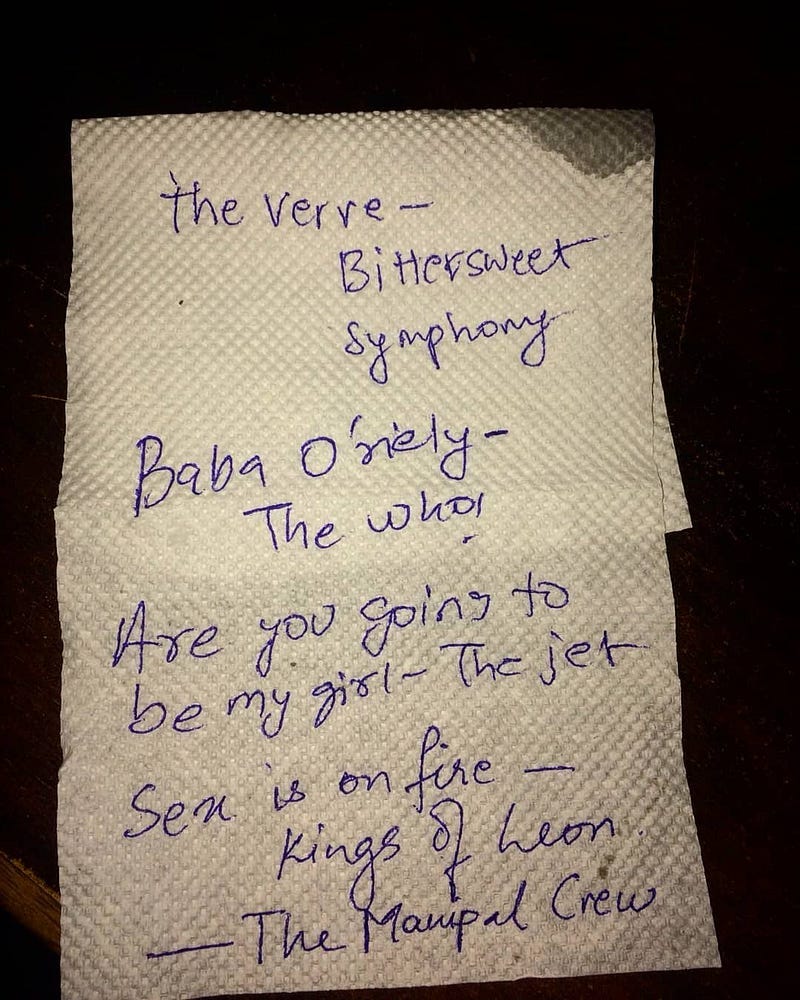 The Verve –
Bittersweet
Symphony
Baba O'riely –
The Who!
Are you going to
be my girl – The jet
Sex is on fire –
Kings of Leon.
— The Manipal Crew